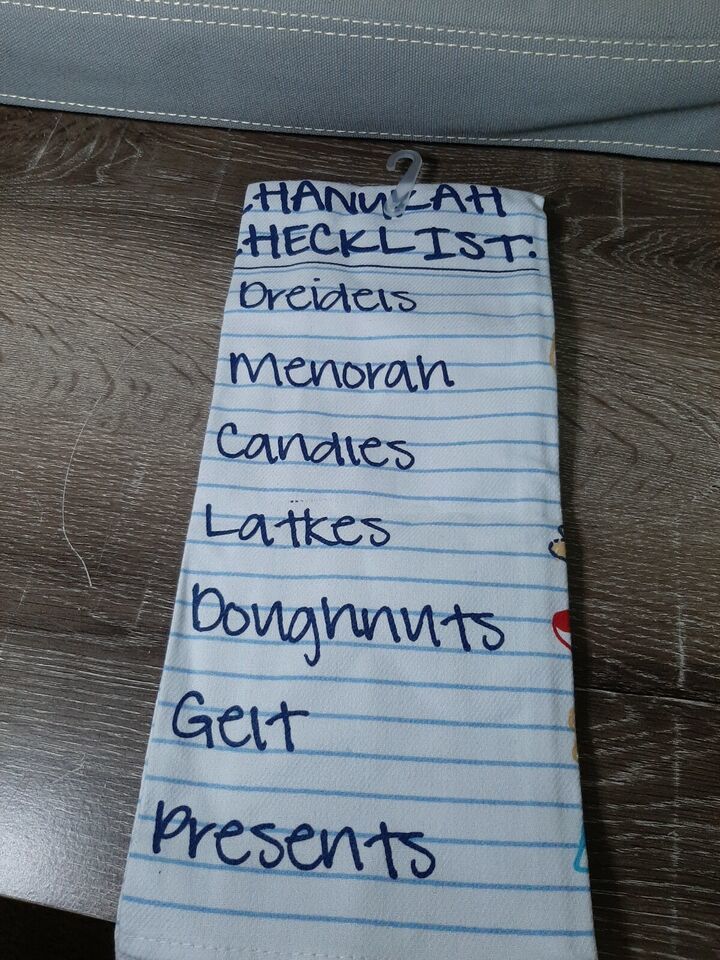 CHANUKAH
CHECKLIST:
Dreidels
Menorah
Candles
Latkes
Doughnuts
Gelt
Presents